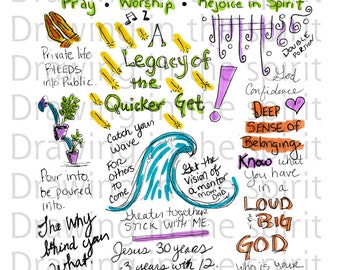 Pray • Worship • Rejoice in Spirit
A
Legacy of
the
Quicker Get
Private life
FEEDS
into Public
Pour into,
be poured
into.
The Why
behind your
what
Catch your
Wave
For
others
to
come
Get the
vision of
a mentor
mom
God
Greater together
STICK WITH ME
Jesus 30 years
3 years with 12.
DOUBLE
PORTION
God
Confidence
DEEP
SENSE OF
Belonging
Know what
You have
in a
LOUD
& BIG
GOD
who is your
Drawing in the Spirit